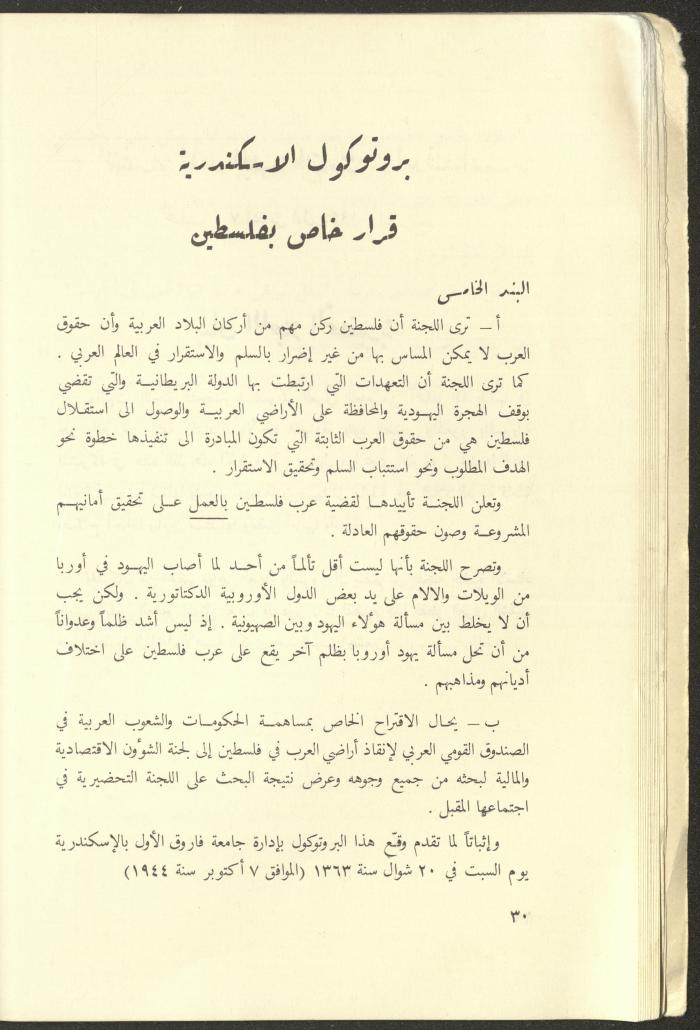 بروتوكول الاسكندرية
قرار خاص بفلسطين
البند الخامس
أ – ترى اللجنة أن فلسطين ركن مهم من أركان البلاد العربية وأن حقوق
العرب لا يمكن المساس بها من غير إضرار بالسلم والاستقرار في العالم العربي .
كما ترى اللجنة أن التعهدات التي ارتبطت بها الدولة البريطانية والتي تقضي
بوقف الهجرة اليهودية والمحافظة على الأراضي العربية والوصول الى استقلال
فلسطين هي من حقوق العرب الثابتة التي تكون المبادرة الى تنفيذها خطوة نحو
الهدف المطلوب ونحو استتباب السلم وتحقيق الاستقرار .
وتعلن اللجنة تأييدها لقضية عرب فلسطين بالعمل على تحقيق أمانيهم
المشروعة وصون حقوقهم العادلة .
وتصرح اللجنة بأنها ليست أقل تألماً من أحد لما أصاب اليهود في أوربا
من الويلات والالام على يد بعض الدول الأوروبية الدكتاتورية . ولكن يجب
أن لا يخلط بين مسألة هؤلاء اليهود وبين الصهيونية . إذ ليس أشد ظلماً وعدواناً
من أن تحل مسألة يهود أوروبا بظلم آخر يقع على عرب فلسطين على اختلاف
أديانهم ومذاهبهم .
ب – يحال الاقتراح الخاص بمساهمة الحكومات والشعوب العربية في
الصندوق القومي العربي لإنقاذ أراضي العرب في فلسطين إلى لجنة الشؤون الاقتصادية
والمالية لبحثه من جميع وجوهه وعرض نتيجة البحث على اللجنة التحضيرية في
اجتماعها المقبل .
وإثباتاً لما تقدم وقّع هذا البروتوكول بإدارة جامعة فاروق الأول بالإسكندرية
يوم السبت في ٢٠ شوال سنة ١٣٦٣ (الموافق ٧ أكتوبر سنة ١٩٤٤)
٣٠